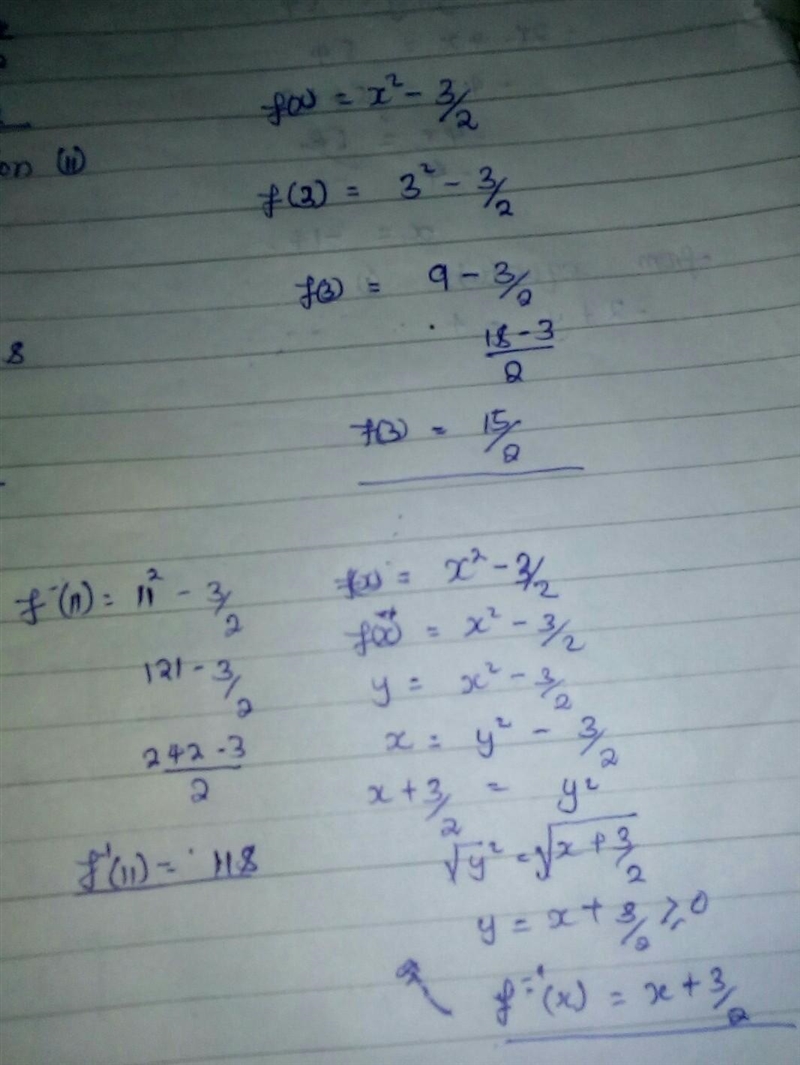 f(x) = x² - 3/2
on (ii)
f(3) = 3² - 3/2
f(3) = 9 - 3/2
8
18 - 3
2
f(3) = 15/2
f⁻(11) = 11² - 3/2
121 - 3/2
242 - 3
2
f⁻¹(11) = 118
f(x) = x² - 3/2
f(x) = x² - 3/2
y = x² - 3/2
x = y² - 3/2
x + 3/2 = y²
√y² = √x + 3/2
y = x + 3/2 ≥ 0
f⁻¹(x) = x + 3/2